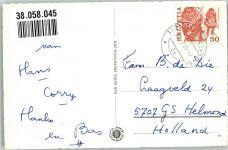 38.058.045
HELVETIA
50
van
Hans
Corry
Hanke
en Bas
Fam. B. de Die
Laagveld 24
5707 GS Helmond
Holland